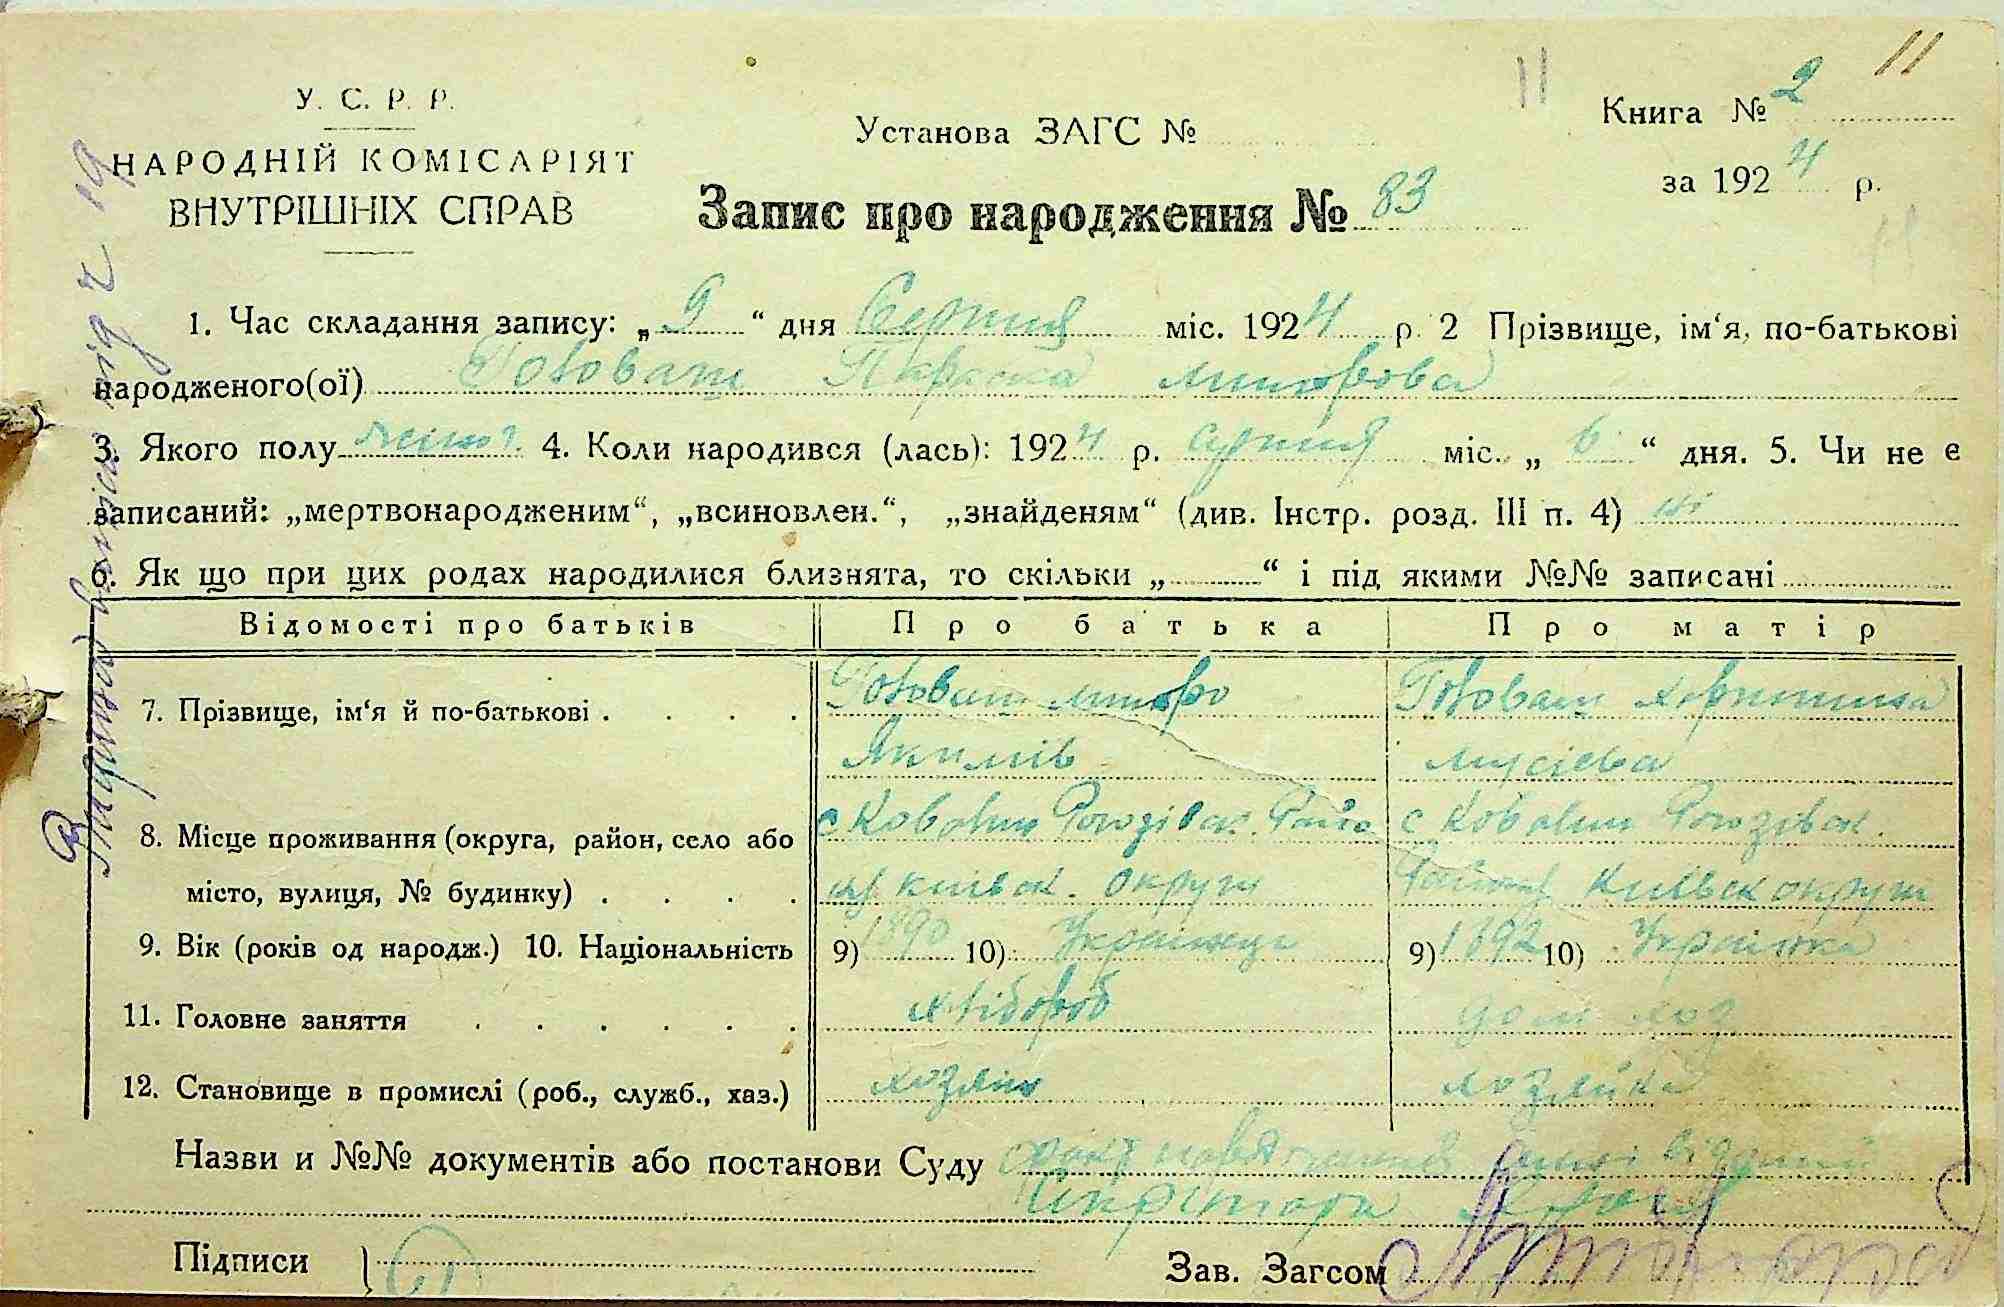 11
У. С. Р. Р.
НАРОДНІЙ КОМІСАРІЯТ
ВНУТРІШНІХ СПРАВ
Установа ЗАГС №
11
Книга № 2
за 1924 р.
Запис про народження № 83
1. Час складання запису: „9“ дня Серпня міс. 1924 р. 2 Прізвище, ім‘я, по-батькові
народженого(ої) Головаш Параска Митрова
3. Якого полу жіноч. 4. Коли народився (лась): 1924 р. серпня міс. „6“ дня. 5. Чи не є
записаний: „мертвонародженим“, „всиновлен.“, „знайденям“ (див. Інстр. розд. III п. 4) ні
6. Як що при цих родах народилися близнята, то скільки „ “ і під якими №№ записані
Відомості про батьків Про батька Про матір
7. Прізвище, ім‘я й по-батькові . . . . Головаш Митро Головаш
Якимів Мусієва
8. Місце проживання (округа, район, село або с Ковалин Рогозівск. Райо с Ковалин Рогозівск.
місто, вулиця, № будинку) . . . . ну київск. округи Району Київск округи
9. Вік (років од народж.) 10. Національність 9) 1890 10) Українець 9) 1892 10) Українка
11. Головне заняття . . . . . . хлібороб дом хоз
12. Становище в промислі (роб., служб., хаз.) хозяїн хозяйка
Назви и №№ документів або постанови Суду
Підписи
Зав. Загсом